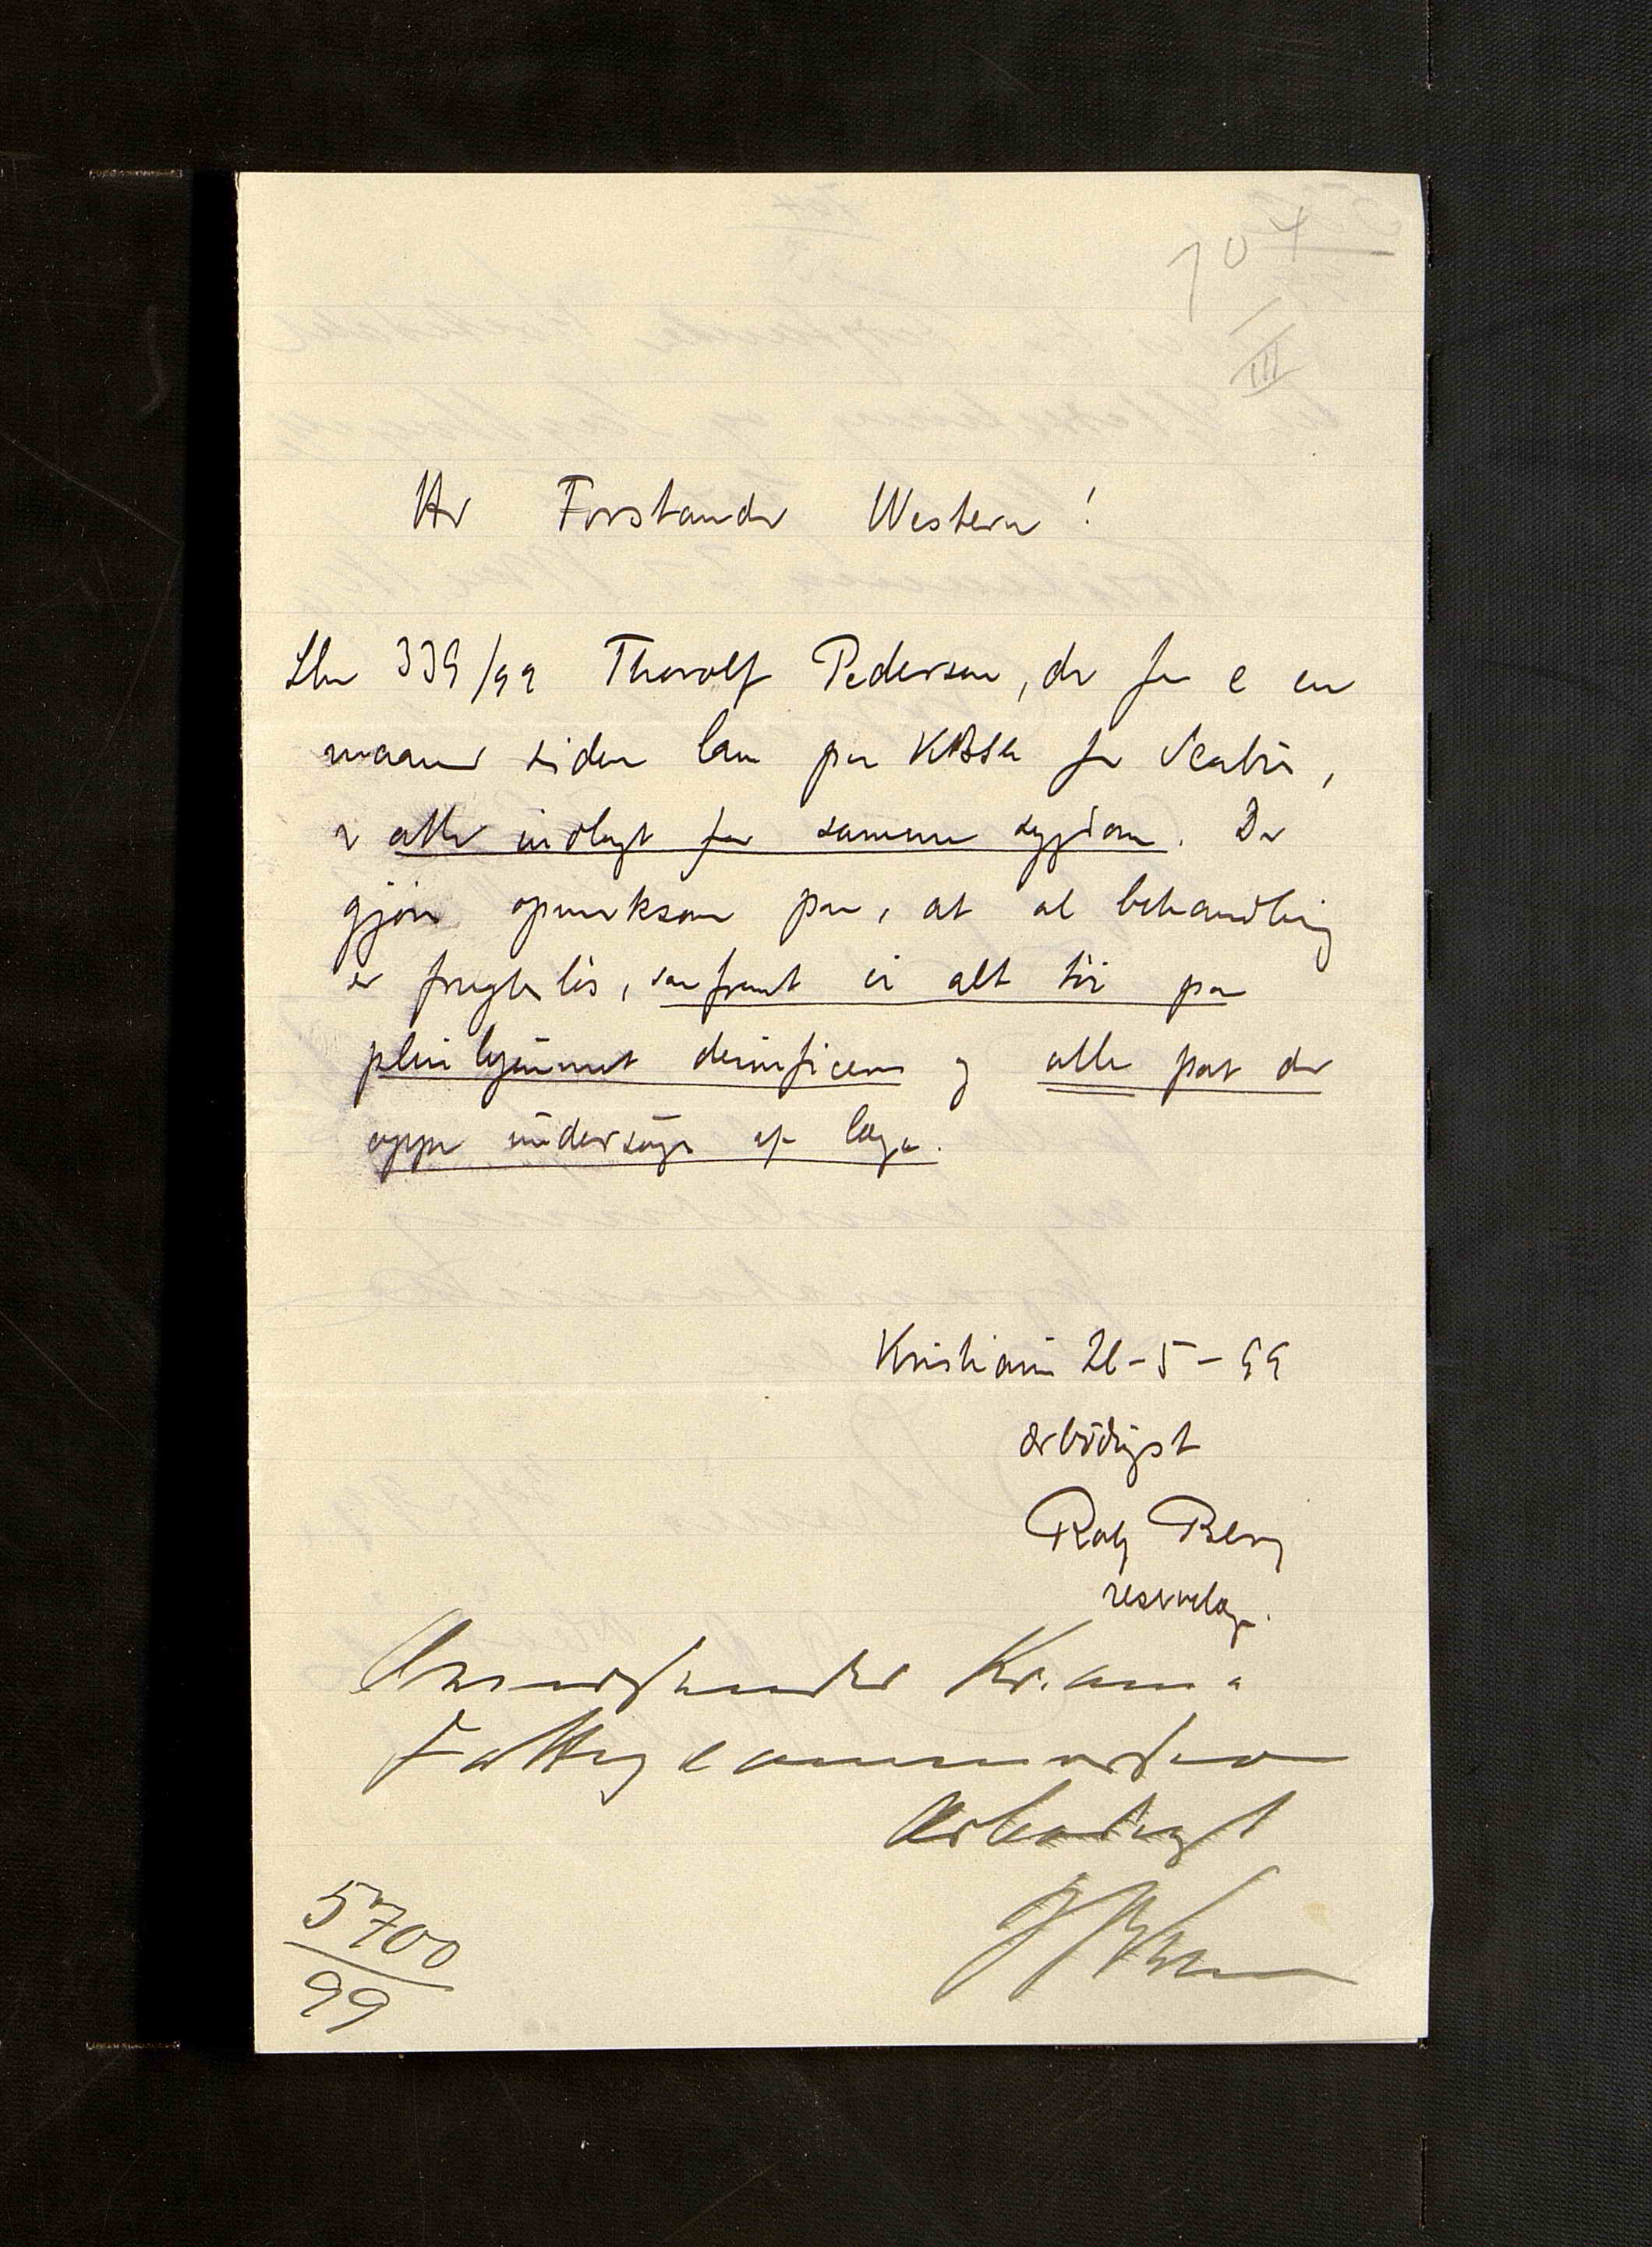 704
III
Hr Forstander Western!
Lbn 339/99 Thorolf Pedersen, der for c en
maaned siden laa paa KBSH for Scabies,
er atter indlagt for samme sygdom. De
gjøres opmerksom paa, at al behandling
er frugtesløs, saafremt ei alt tøi paa
pleiehjemmet desinficeres og alle pat der
oppe undersøges af læge.
Kristiania 26-5-99
ærbødigst
Rolf Berg
reservelæge.
Oversendes Kr.ania
Fattigcommission
Ærbødigst
5700
99